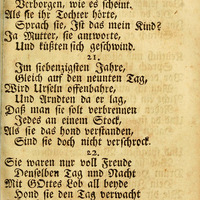 Verborgen, wie es scheint.
Als sie ihr Tochter hörte,
Sprach sie, Ist das mein Kind?
Ja Mutter, sie antworte,
Und küßten sich geschwind.
21.
Im siebenzigsten Jahre,
Gleich auf den neunten Tag,
Wird Urseln offenbahre,
Und Arndten da er lag,
Daß man sie solt verbrennen
Jedes an einem Stock,
Als sie das hond verstanden,
Sind sie doch nicht verschrock.
22.
Sie waren nur voll Freude
Denselben Tag und Nacht
Mit GOttes Lob all beyde
Hond sie den Tag verwacht